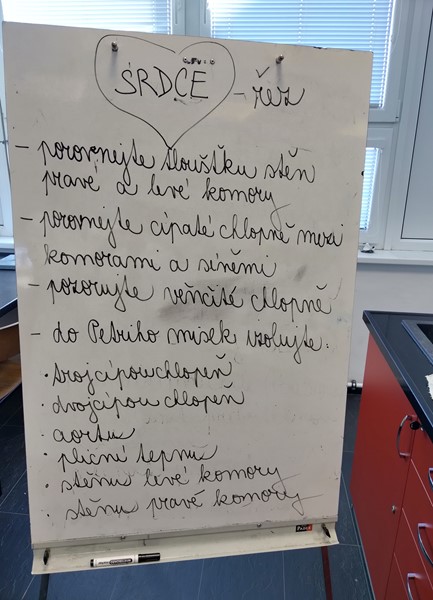 SRDCE - řez
- porovnejte tloušťku stěn
pravé a levé komory
- porovnejte cípaté chlopně mezi
komorami a síněmi
- pozorujte věnčité chlopně
- do Petriho misek izolujte:
· trojcípou chlopeň
· dvojcípou chlopeň
· aortu
· plicní tepnu
· stěnu levé komory
· stěnu pravé komory